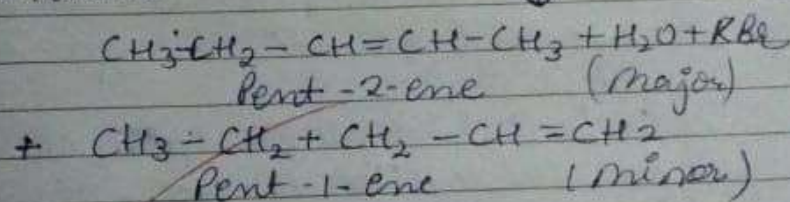 CH3-CH2-CH=CH-CH3+H2O+RBr
Pent-2-ene (major)
+ CH3-CH2+CH2-CH=CH2
Pent-1-ene (minor)